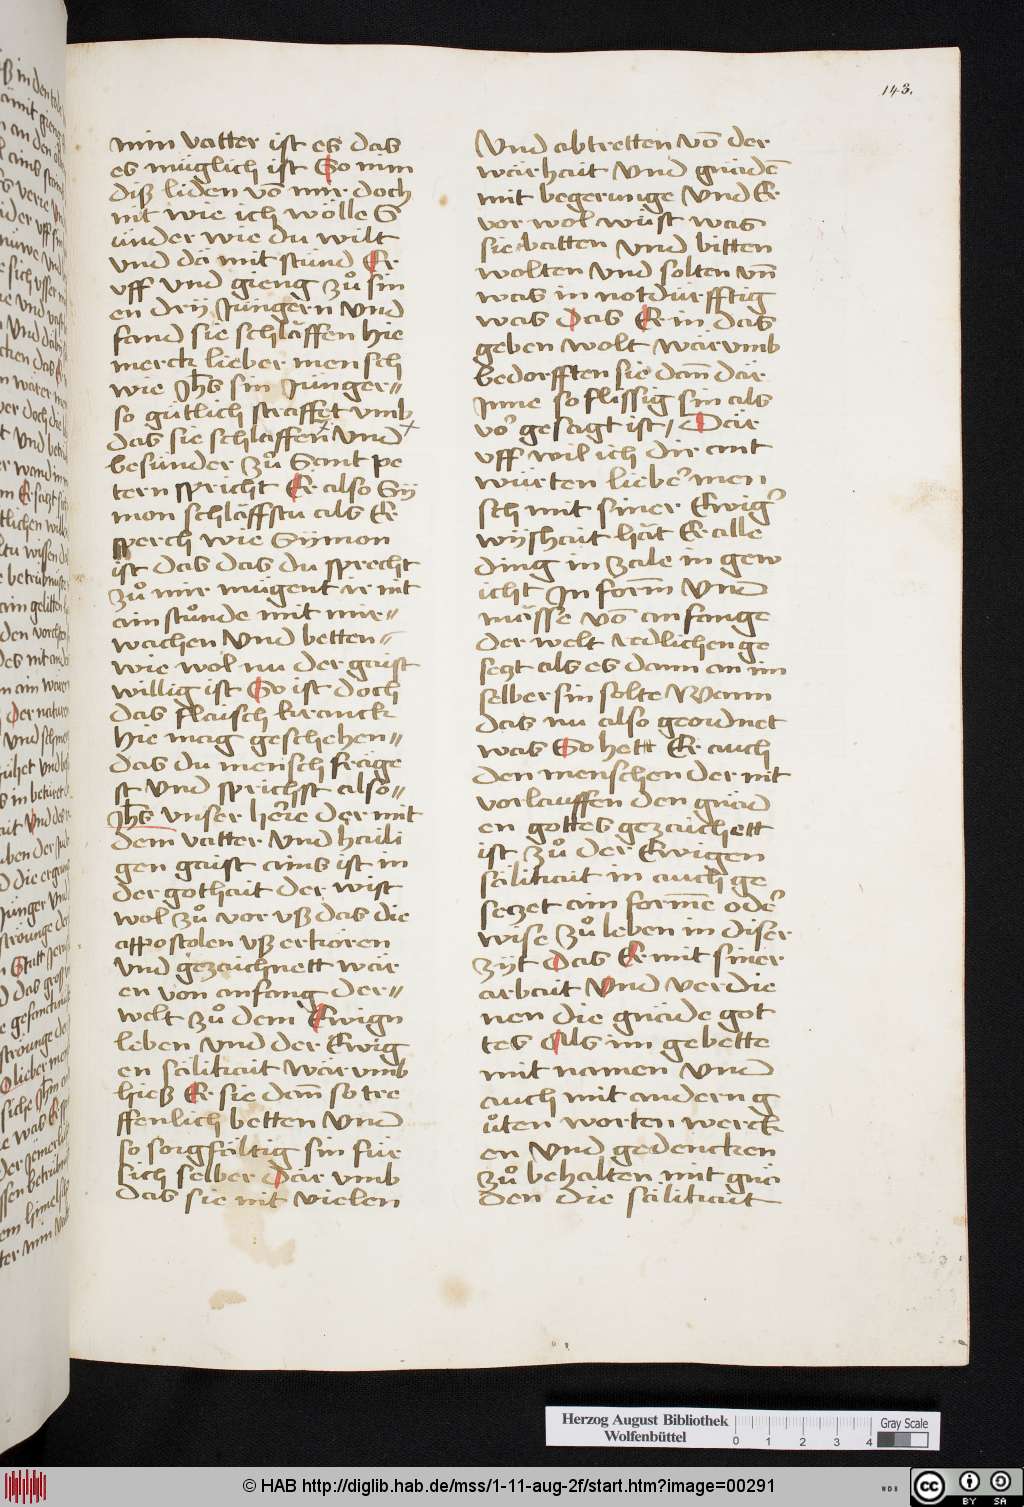 143.
min vatter ist es das
es müglich ist So nim
disz liden võ mir doch
nit wie ich wölle S
under wie du wilt
vnd dä mit stünd Er
vff vnd gieng zů sin
en drÿ Jüngern vnd
fand sie schläffen hie
merck lieber mensch
wie Jhs sin Junger〃
so gütlich straffet vmb
das sie schlaffen vnd
besunder zů Sant pe
tern spricht Er also Sÿ
mon schläffstu als Er
sprech wie Sÿmon
ist das das du sprecht
zů mir mügent ir nit
ain stůnde mit mir〃
wachen vnd betten〃
wie wol nu der gaist
willig ist So ist doch
das flaisch kranck
hie mag geschehen〃
das du mensch fräge
st vnd sprichst also〃
Jhs vnser here der mit
dem vatter vnd haili
gen gaist ains ist in
der gothait der wist
wol zů vor vsz das die
appostolen vsz erkoren
vnd gezaichnett wär
en von anfang der〃
welt zů dem Ewign
leben vnd der Ewig
en sälikait wär vmb
hiesz Er sie dann so tre
ffenlich betten vnd
so sorgfältig sin für
sich selber Där vmb
das sie nit vielen
Vnd abtretten võ der
wärhait vnd gnäden
mit begerunge vnd Er
vor wol wüst was
sie batten vnd bitten
wolten vnd solten vñ
was in notdürfftig
was Das Er in das
geben wolt wär vmb
bedorfften sie dann där
Inne so flissig sin als
vor gesagt ist / Där
vff wil ich dir ant
würten lieber men
sch mit siner Ewigr
wÿshait hät Er alle
ding in zale in gew
icht In form vnd
mässe võ anfange
der welt redlichen ge
sezt als es dann an im
selber sin solte Wann
das nu also geordnet
was So hett Er auch
den menschen der nit
vorlauffen den gnäd
en gottes gezaichett
ist zů der Ewigen
sälikait in auch ge
sezet ain forme oder
wise zů leben in diser
zÿt das Er mit siner
arbait vnd verdie
nen die gnäde got
tes Als im gebette
mit namen vnd
auch mit andern g
ůten worten werck
en vnd gedencken
zů behalten mit gnä
den die sälikait
Herzog August Bibliothek
Wolfenbüttel
0 1 2 3 4
Gray Scale
© HAB http://diglib.hab.de/mss/1-11-aug-2f/start.htm?image=00291
WDB
cc BY SA